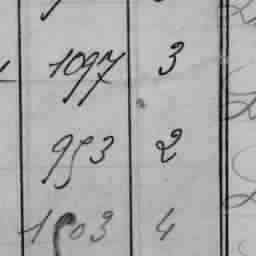 1097 3
953 2
1503 4